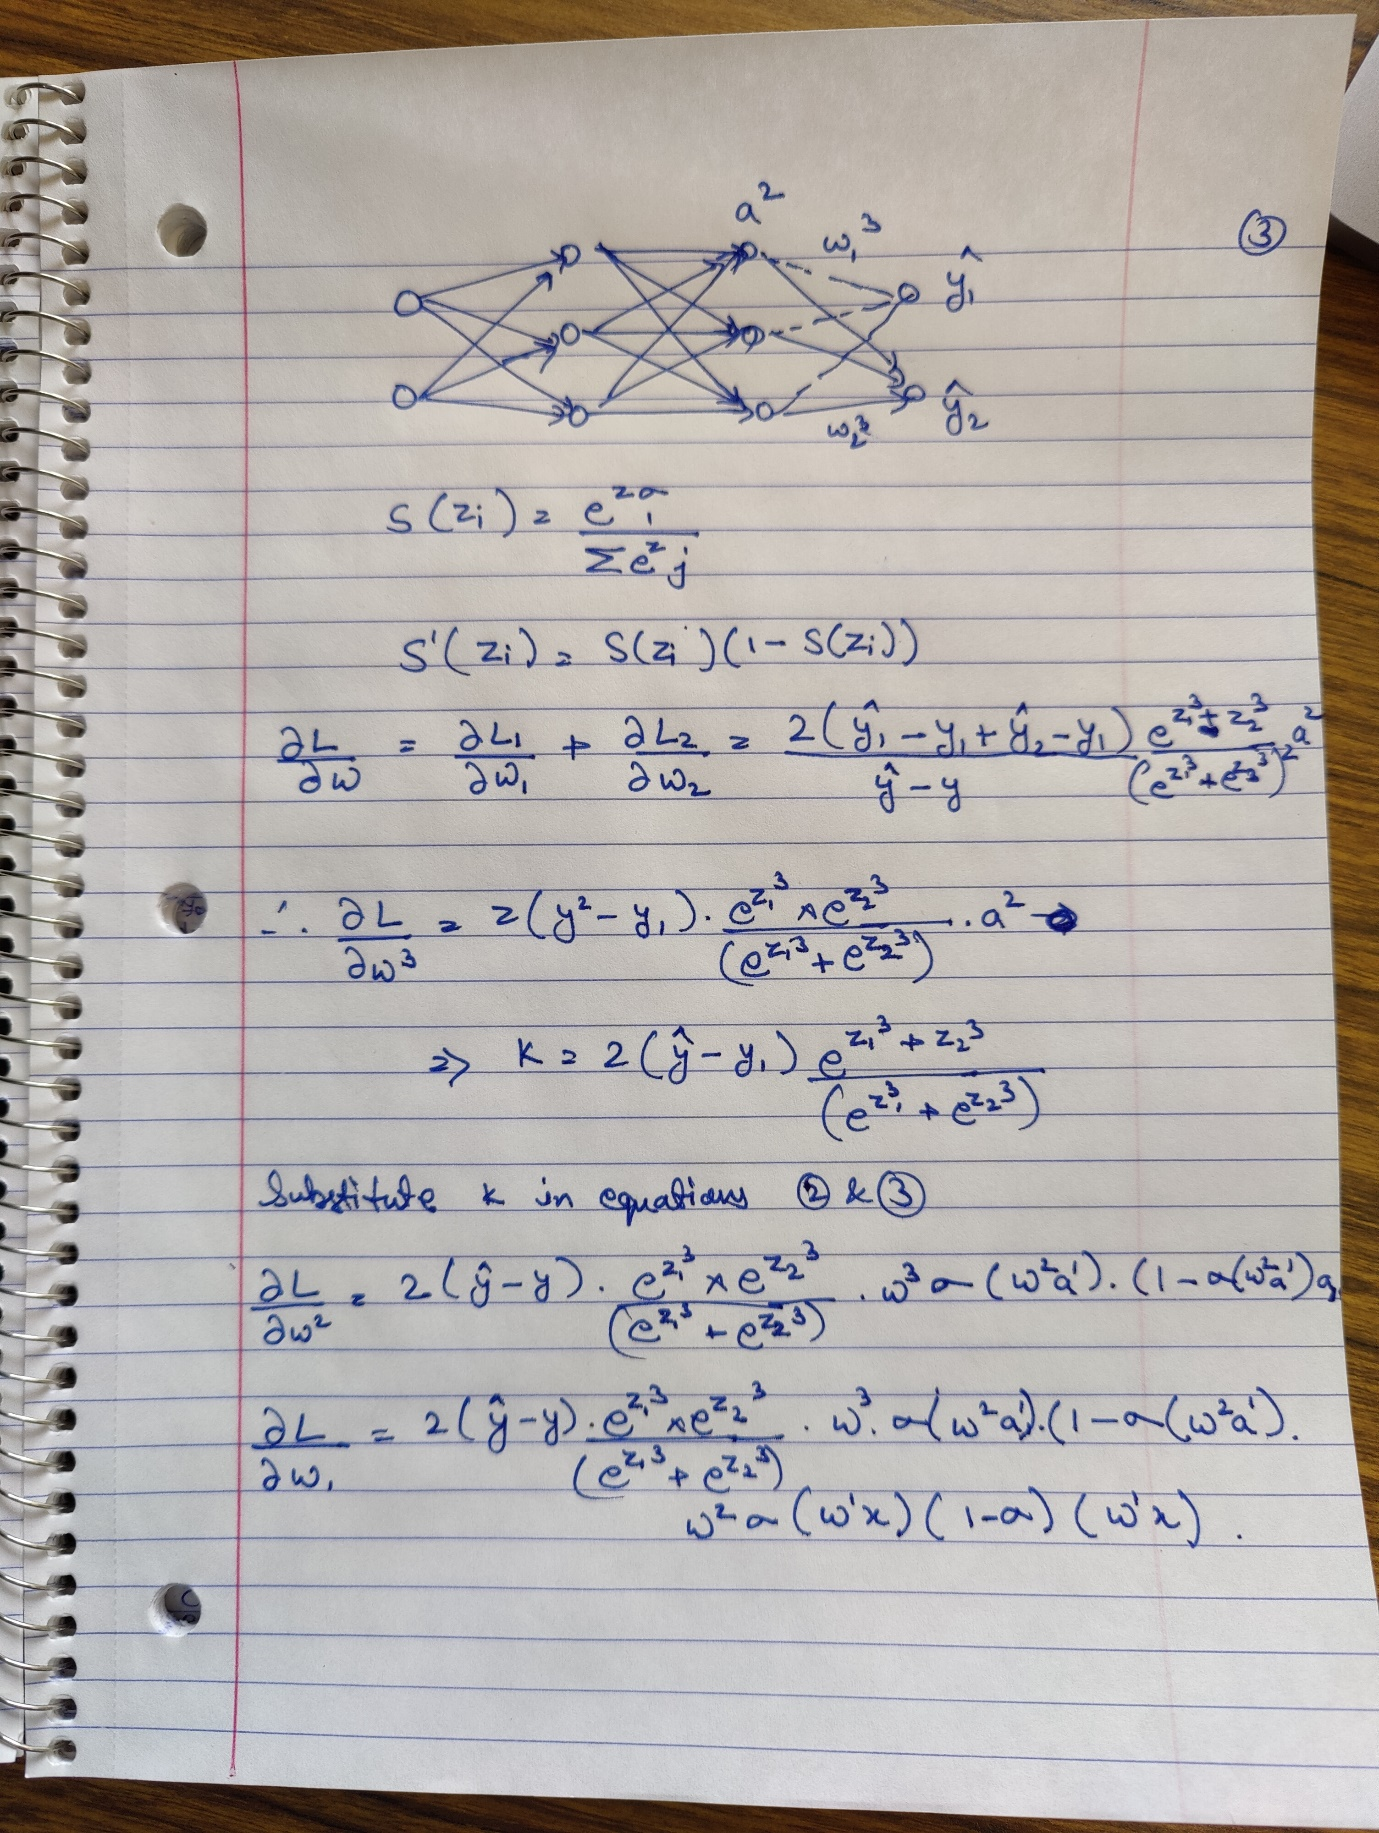 a²
w₁³
③
ŷ₁
ŷ₂
w₂³
S(zᵢ) = e^zσᵢ / Σe^z j
S'(zᵢ) = S(zᵢ)(1 - S(zᵢ))
∂L/∂w = ∂L₁/∂w₁ + ∂L₂/∂w₂ = 2(ŷ₁ - y₁ + ŷ₂ - y₁)/(ŷ - y) e^(z₁³ + z₂³)/(e^z₁³ + e^z₂³)² a²
∴ ∂L/∂w³ = 2(y² - y₁) . e^z₁³ × e^z₂³/(e^z₁³ + e^z₂³) . a²
=> K = 2(ŷ - y₁) e^(z₁³ + z₂³)/(e^z₁³ + e^z₂³)
Substitute k in equations ② & ③
∂L/∂w² = 2(ŷ - y) . e^z₁³ × e^z₂³/(e^z₁³ + e^z₂³) . w³ σ(w²a¹) . (1 - σ(w²a¹)a₁
∂L/∂w₁ = 2(ŷ - y) . e^z₁³ × e^z₂³/(e^z₁³ + e^z₂³) . w³ . σ(w²a¹) . (1 - σ(w²a¹) .
w² σ(w¹x)(1 - σ)(w¹x) .